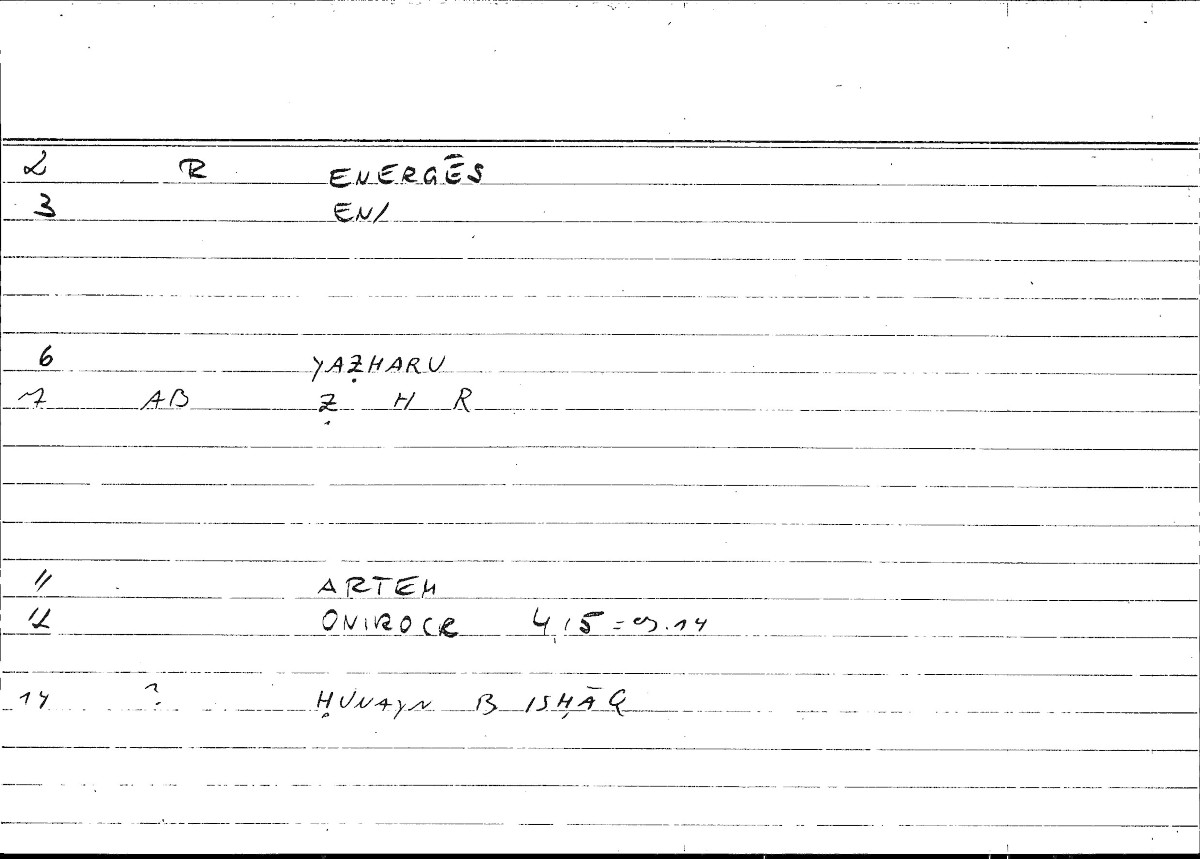 2 R ENERGĒS
3 EN/
6 YAẒHARU
7 AB Ẓ H R
11 ARTEM
12 ONIROCR 4,15 = 09.14
14 ? ḤUNAYN B ISḤĀQ